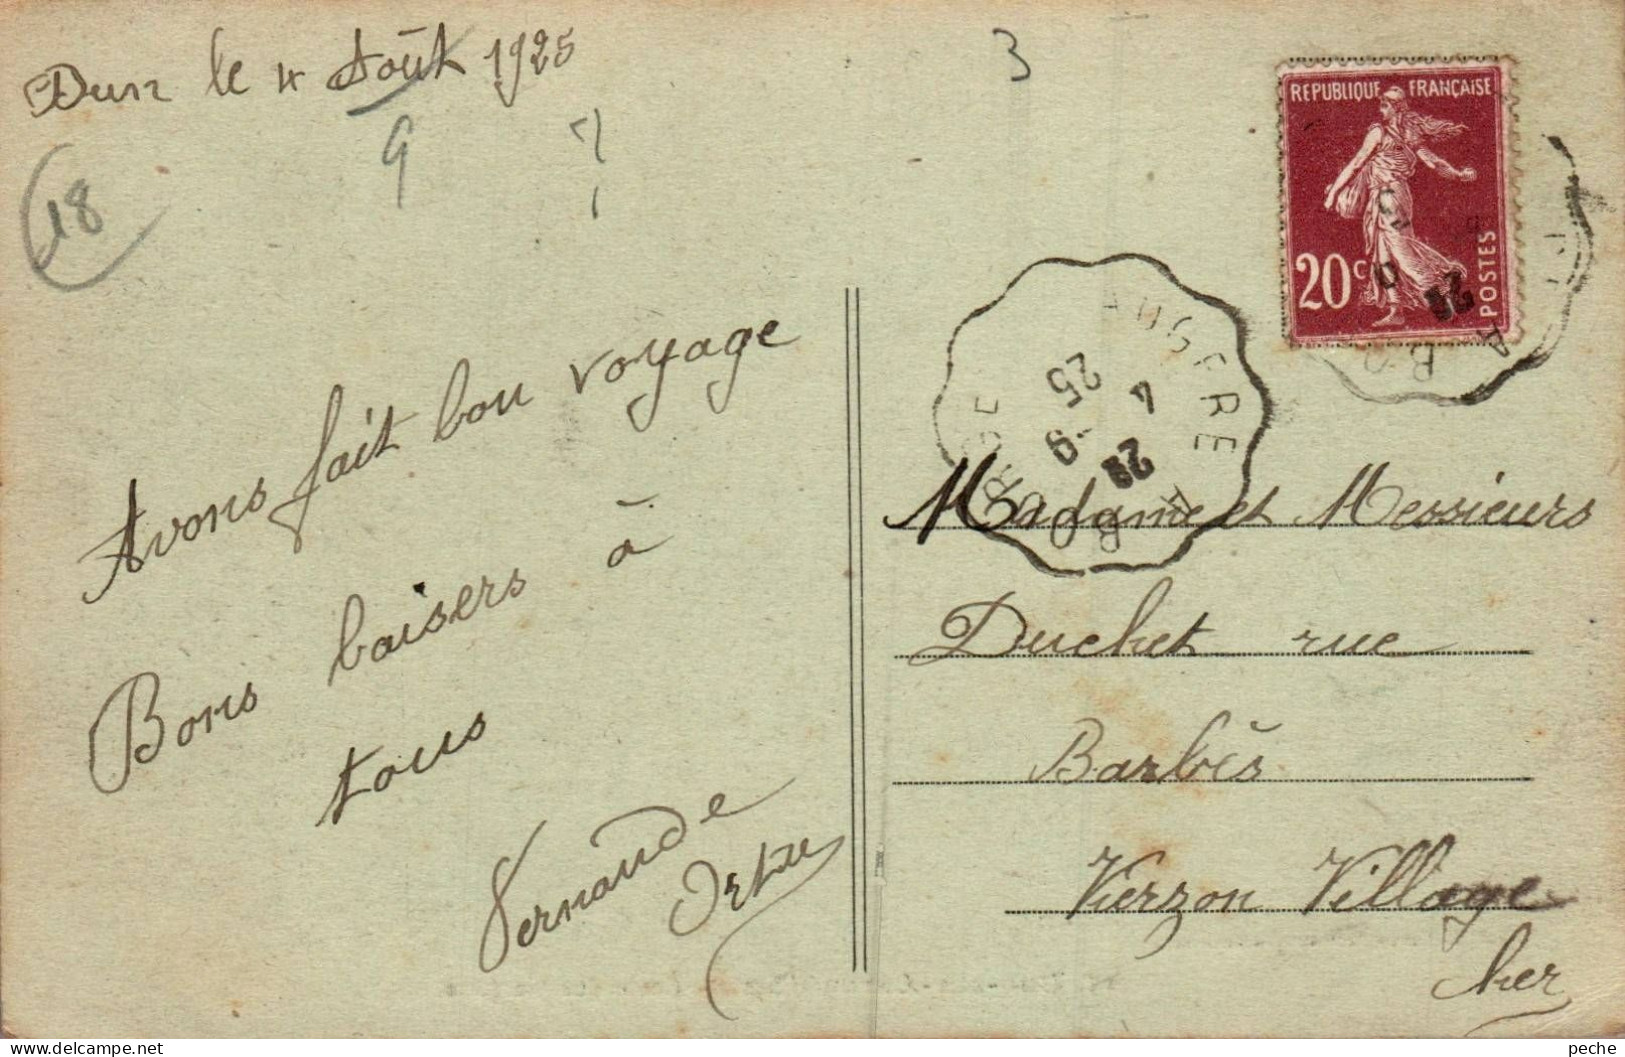 Dun le 4 Août 1925
9 ?
3
18
RÉPUBLIQUE FRANÇAISE
20c
POSTES
AUGERE A BO
4 -9
25
Avons fait bon voyage
Bons baisers à
tous
Fernande
Madame et Messieurs
Duchet rue
Barbès
Vierzon Village
Cher
peche